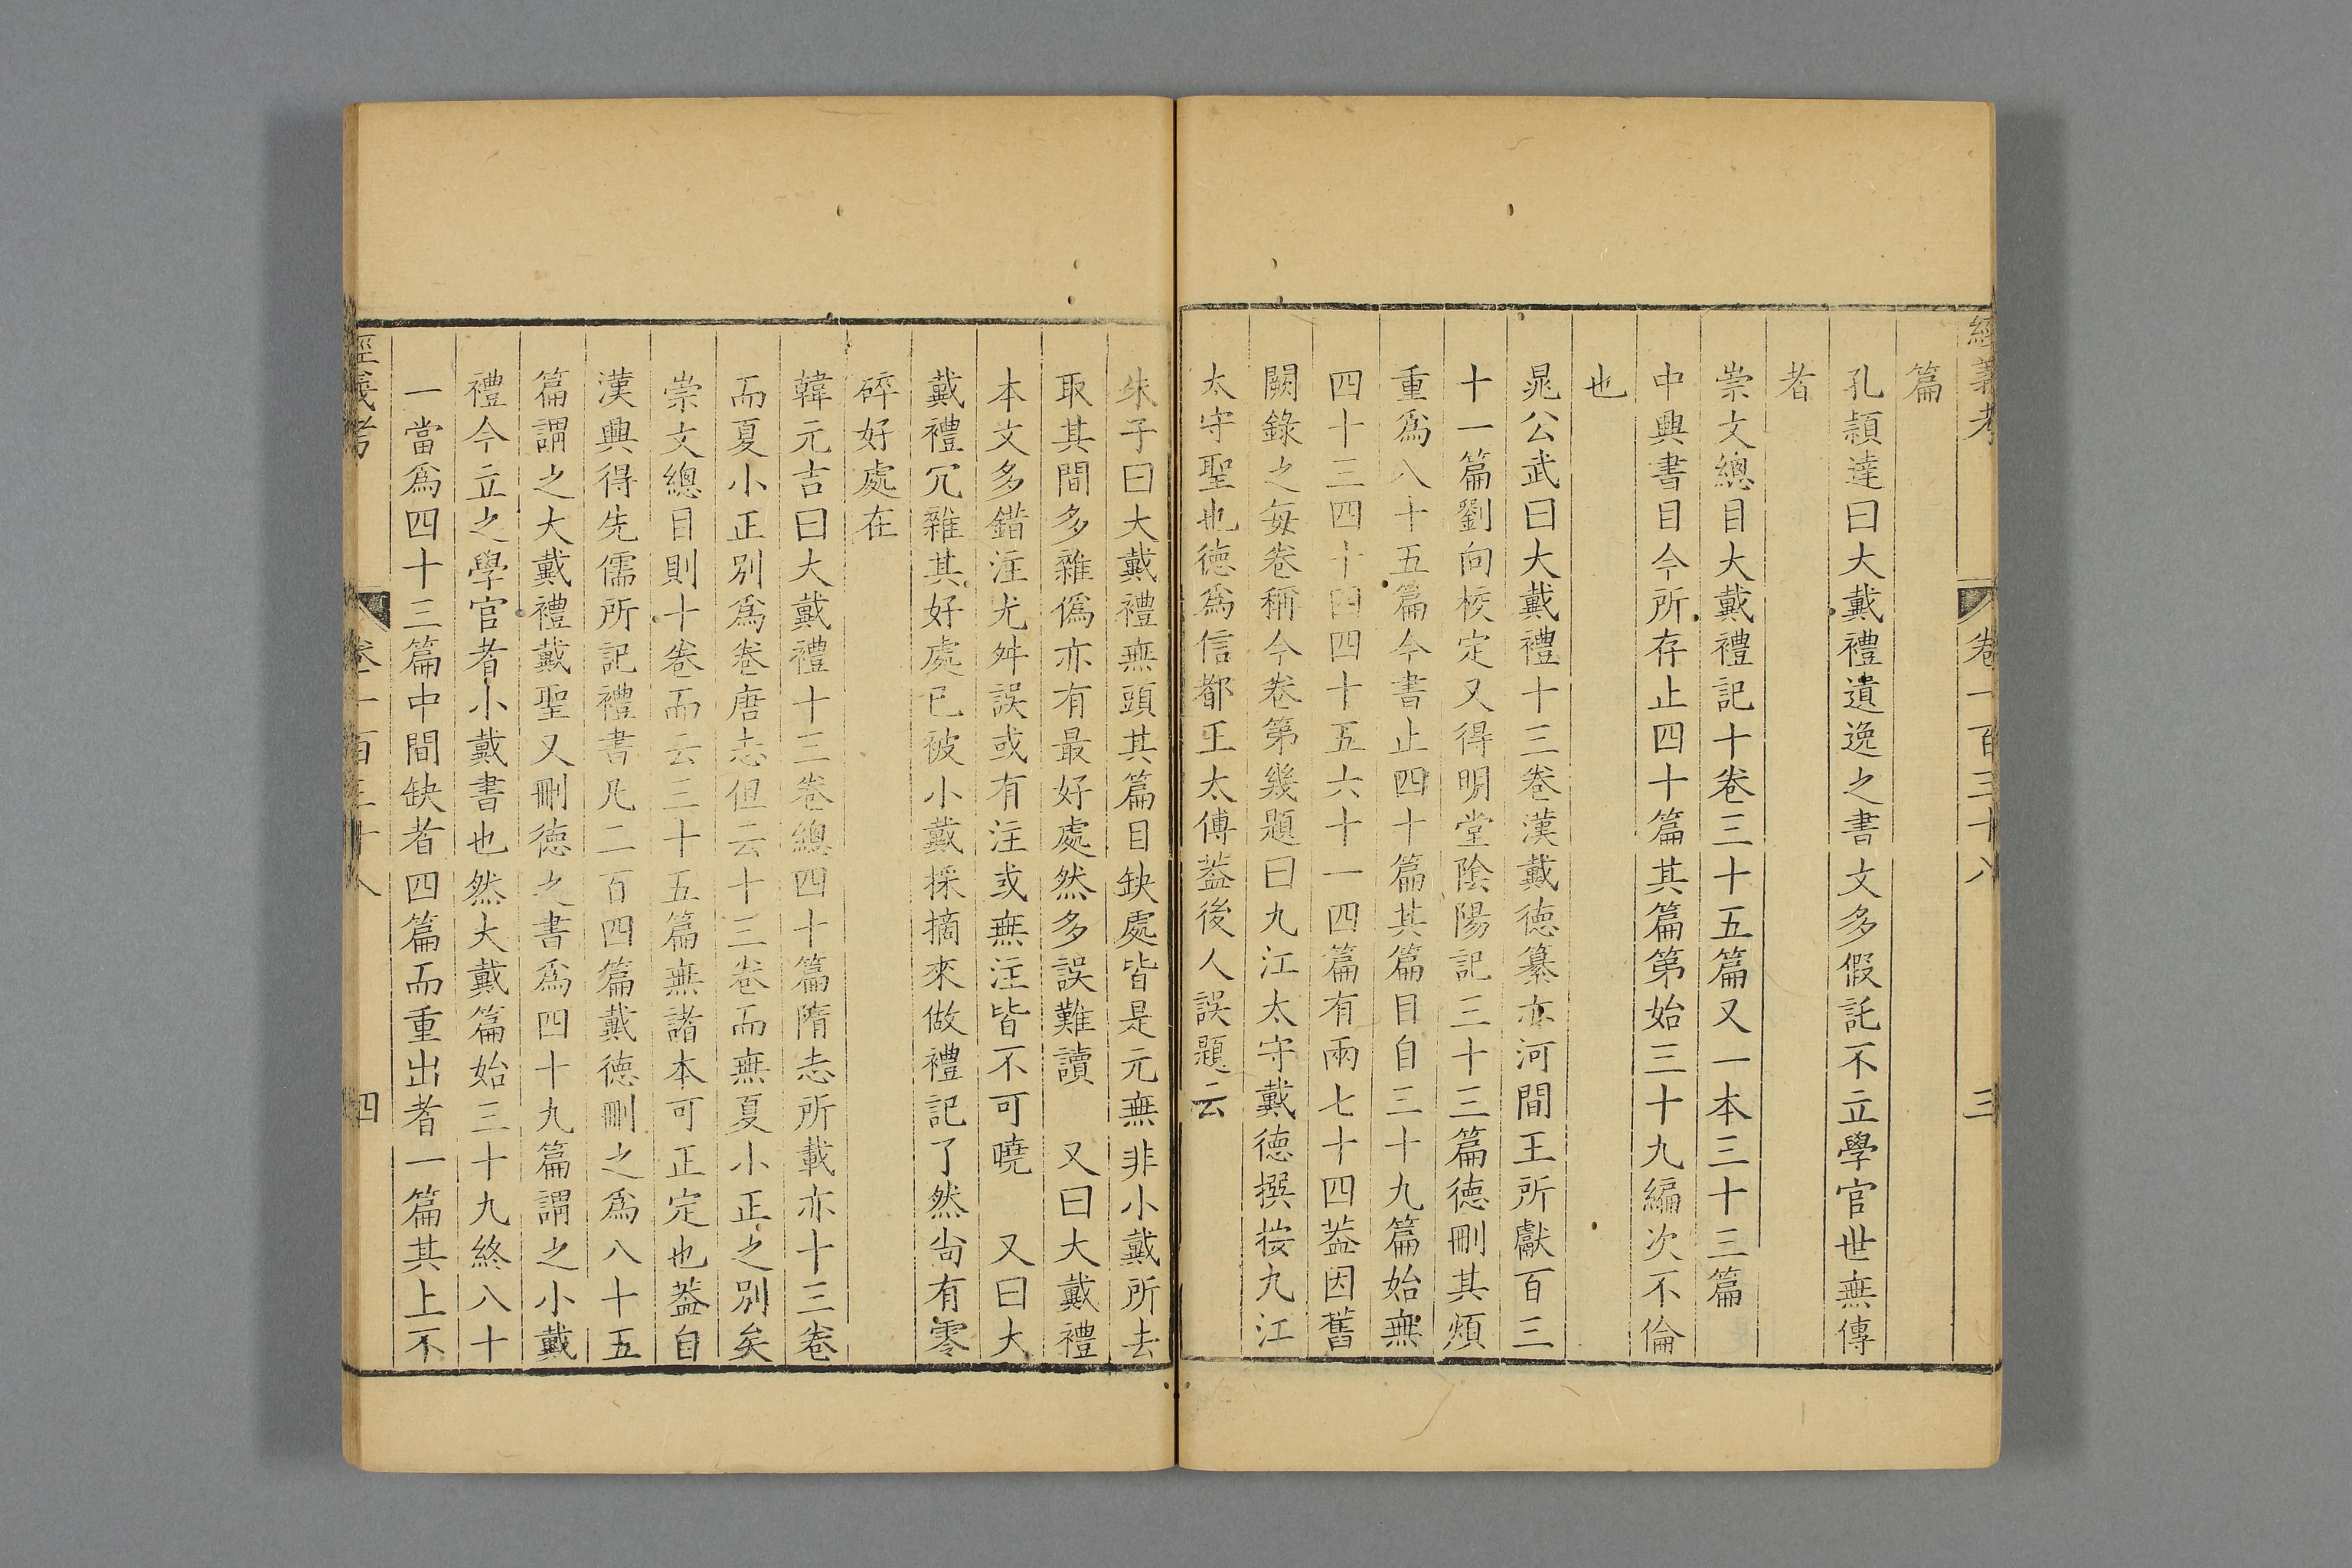 經義考 卷一百三十八 三
篇
孔頴達曰大戴禮遺逸之書文多假託不立學官世無傳
者
崇文總目大戴禮記十卷三十五篇又一本三十三篇
中興書目今所存止四十篇其篇第始三十九編次不倫
也
晁公武曰大戴禮十三卷漢戴德纂亦河間王所獻百三
十一篇劉向校定又得明堂陰陽記三十三篇德刪其煩
重爲八十五篇今書止四十篇其篇目自三十九篇始無
四十三四十四四十五六十一四篇有兩七十四葢因舊
闕錄之每卷稱今卷第幾題曰九江太守戴德撰按九江
太守聖也德爲信都王太傅葢後人誤題云
朱子曰大戴禮無頭其篇目缺處皆是元無非小戴所去
取其間多雜僞亦有最好處然多誤難讀 又曰大戴禮
本文多錯注尤舛誤或有注或無注皆不可曉 又曰大
戴禮冗雜其好處已被小戴採摘來做禮記了然尚有零
碎好處在
韓元吉曰大戴禮十三卷總四十篇隋志所載亦十三卷
而夏小正別爲卷唐志但云十三卷而無夏小正之別矣
崇文總目則十卷而云三十五篇無諸本可正定也葢自
漢興得先儒所記禮書凡二百四篇戴德刪之爲八十五
篇謂之大戴禮戴聖又刪德之書爲四十九篇謂之小戴
禮今立之學官者小戴書也然大戴篇始三十九終八十
一當爲四十三篇中間缺者四篇而重出者一篇其上不
經義考 卷一百三十八 四